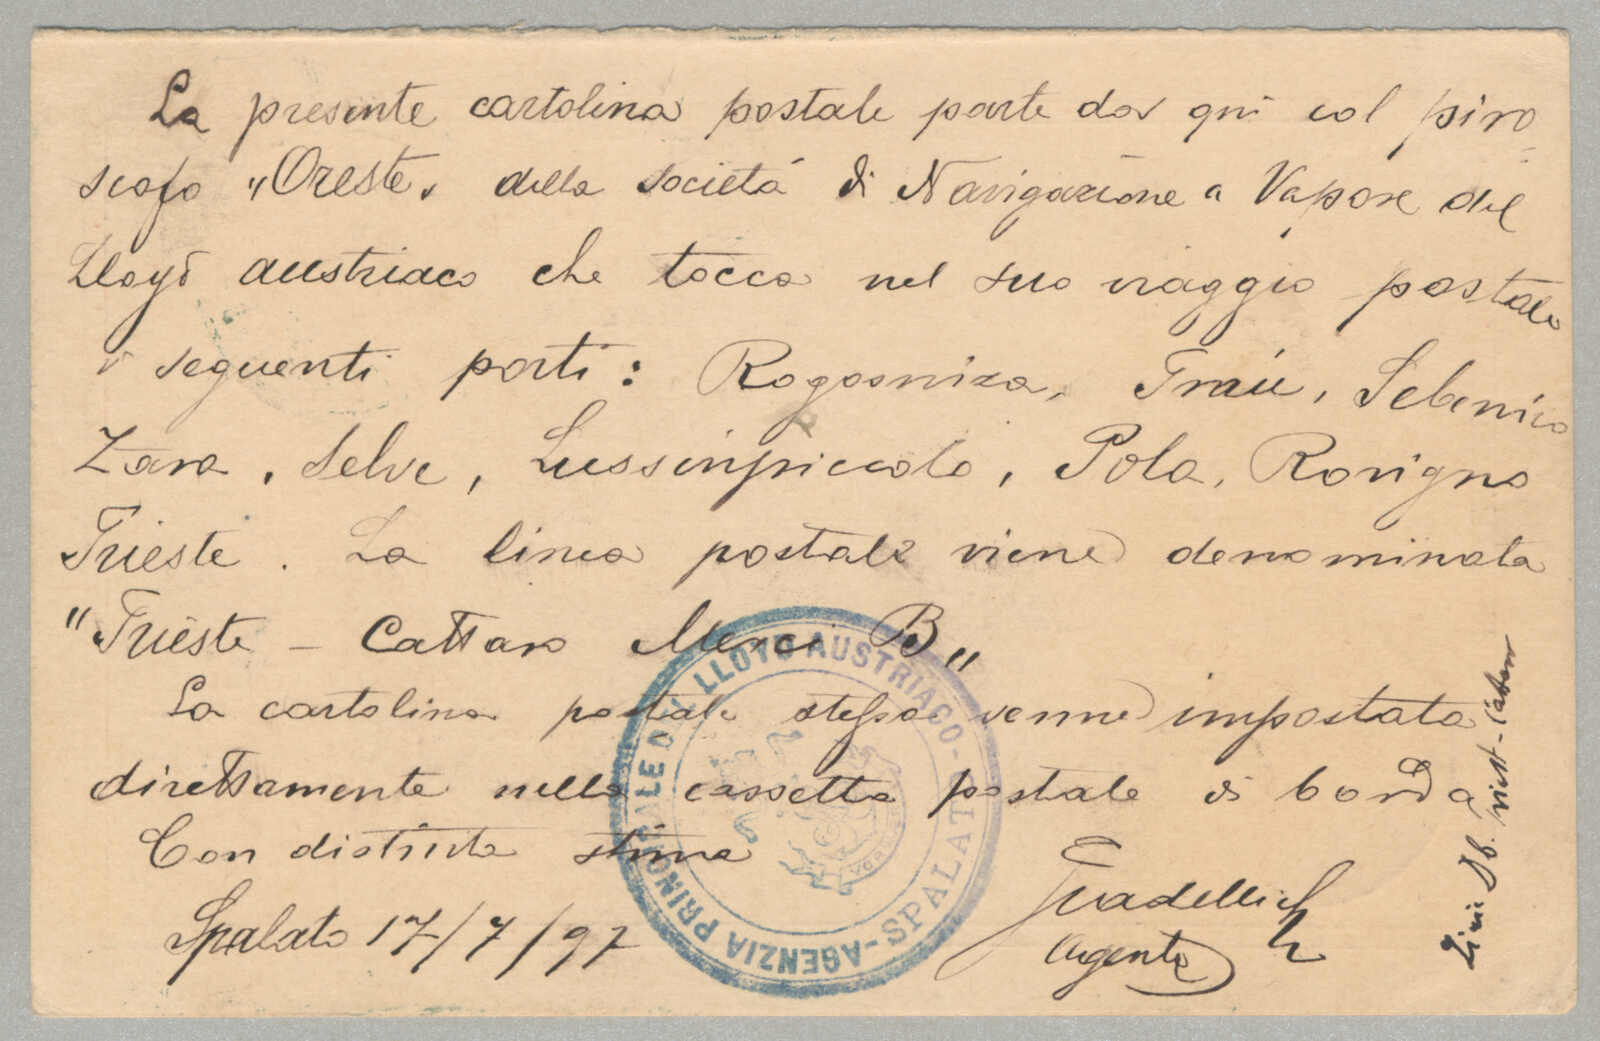 La presente cartolina postale parte da qui col piro
scafo „Oreste„ della società di Navigazione a Vapore del
Lloyd austriaco che tocca nel suo viaggio postale
i seguenti porti: Rogosniza, Traù, Sebenico
Zara, Selve, Lussinpiccolo, Pola, Rovigno
Trieste. La linea postale viene denominata
"Trieste – Cattaro Merci B„
La cartolina postale stessa venne impostata
direttamente nella cassetta postale di bordo
Con distinta stima
Spalato 17/7/97
Agente
AGENZIA PRINCIPALE DEL LLOYD AUSTRIACO - SPALATO -